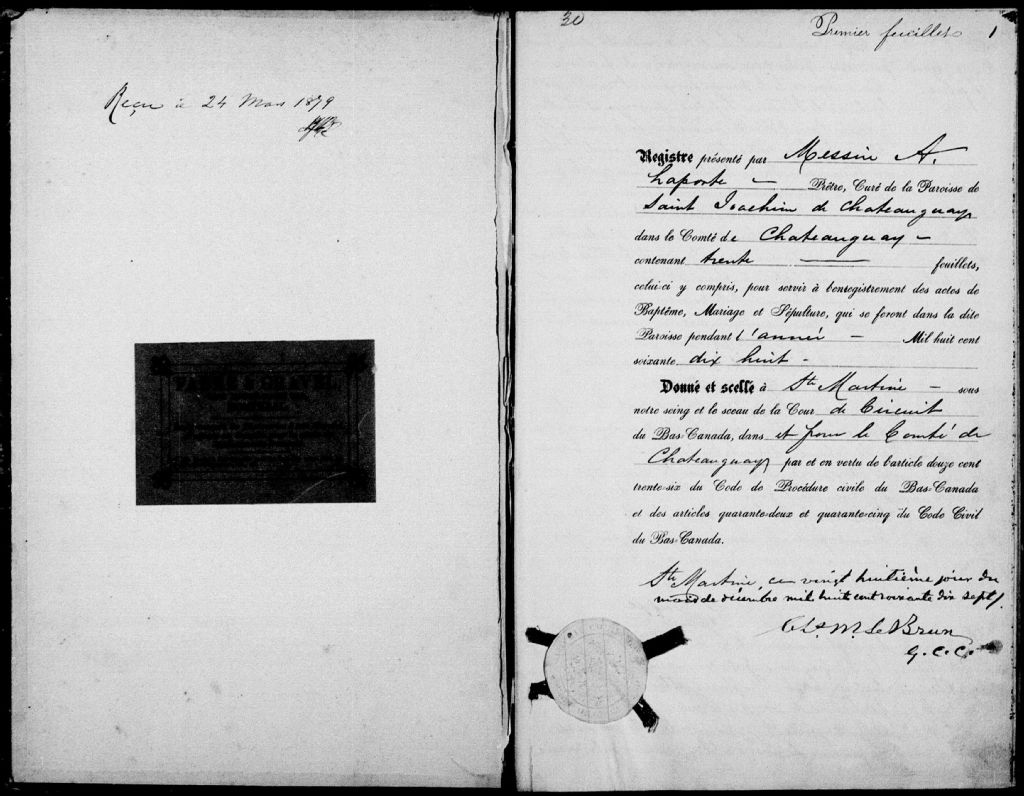 Reçu le 24 Mars 1879
30
Premier feuillet 1
Registre présenté par Messire A.
Laporte — Prêtre, Curé de la Paroisse de
Saint Joachim de Chateauguay
dans le Comté de Chateauguay —
contenant trente —— feuillets,
celui-ci y compris, pour servir à l'enregistrement des actes de
Baptême, Mariage et Sépulture, qui se feront dans la dite
Paroisse pendant l'année — Mil huit cent
soixante dix huit -
Donné et scellé à Ste Martine — sous
notre seing et le sceau de la Cour de Circuit
du Bas-Canada, dans et pour le Comté de
Chateauguay par et en vertu de l'article douze cent
trente-six du Code de Procédure civile du Bas-Canada
et des articles quarante-deux et quarante-cinq du Code Civil
du Bas-Canada.
Ste Martine, ce vingt huitième jour du
mois de décembre mil huit cent soixante dix sept.
Chs. M. LeBrun
G. C. C.